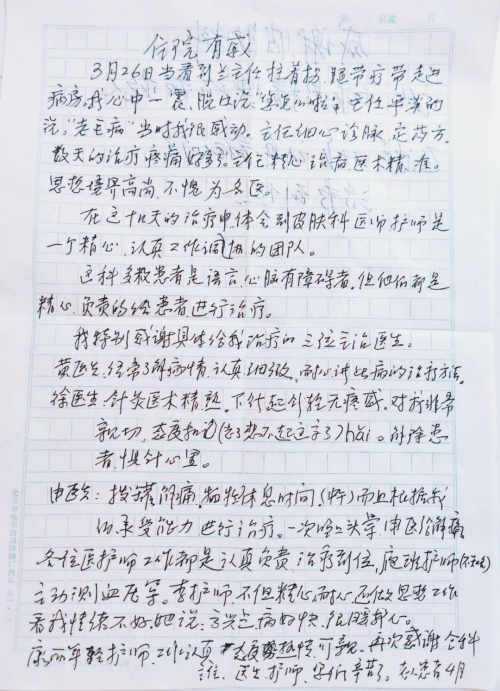 住院有感
3月26日当看到兰主任拄着拐,腿带疗带走进
病房,我心中一震,脱口说"您怎么啦",主任平淡的
说:"老毛病"当时我很感动。主任细心诊脉,定药方,
数天的治疗疼痛好多。主任精心治病医术精准。
思想境界高尚,不愧为名医。
在这十几天的治疗中体会到皮肤科医师护师是
一个精心,认真工作调协的团队。
这科多数患者是语言,心脑有障碍者,但他们都是
精心,负责的给患者进行治疗。
我特别感谢具体给我治疗的三位主治医生。
黄医生,经常了解病情,认真细致,耐心讲出病的治疗方法。
徐医生:针灸医术精熟,下针起针轻无疼感,对我非常
亲切,态度和(老了想不起这字了)hǎi。解除患
者,惧针心里。
申医生:拔罐解痛,牺牲休息时间,(中午)而且根据我
的承受能力进行治疗。一次晚上头晕申医给解痛
各位医护师工作都是认真负责治疗到位,夜班护师
主动测血压等。李护师不但精心,耐心还做思想工作
看我情绪不好,她说:高兴点病好快,很暖我心。
康丽年轻护师,工作认真态度热情,可亲。再次感谢全科
主任、医生、护师,您们辛苦了。老人患者4月